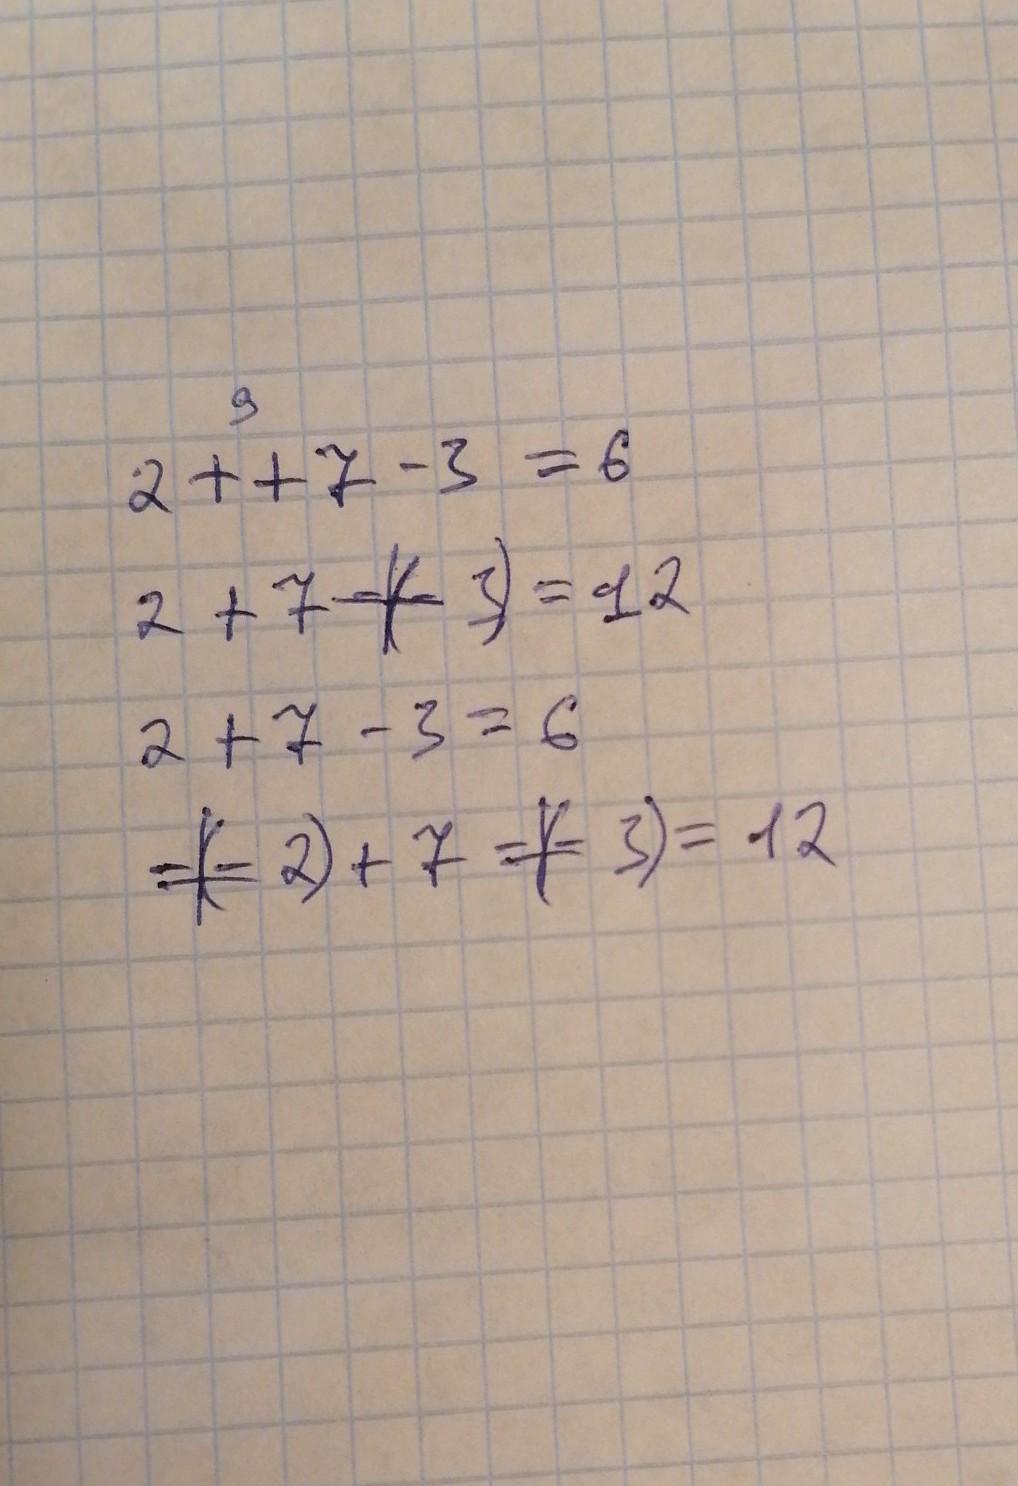 9
2 + + 7 - 3 = 6
2 + 7 - (- 3) = 12
2 + 7 - 3 = 6
- (- 2) + 7 - (- 3) = 12